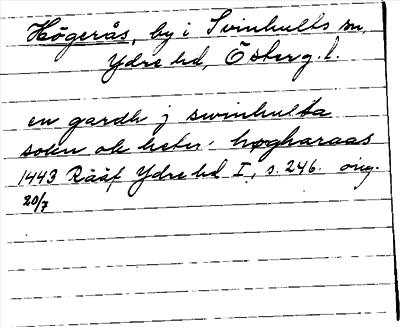 Högerås, by i Svinhults sn,
Ydre hd, Österg. l.
en gardh j swinhulta
sokn ok heter høgharaas
1443 Rääf Ydre hd I, s. 246. orig.
20/7